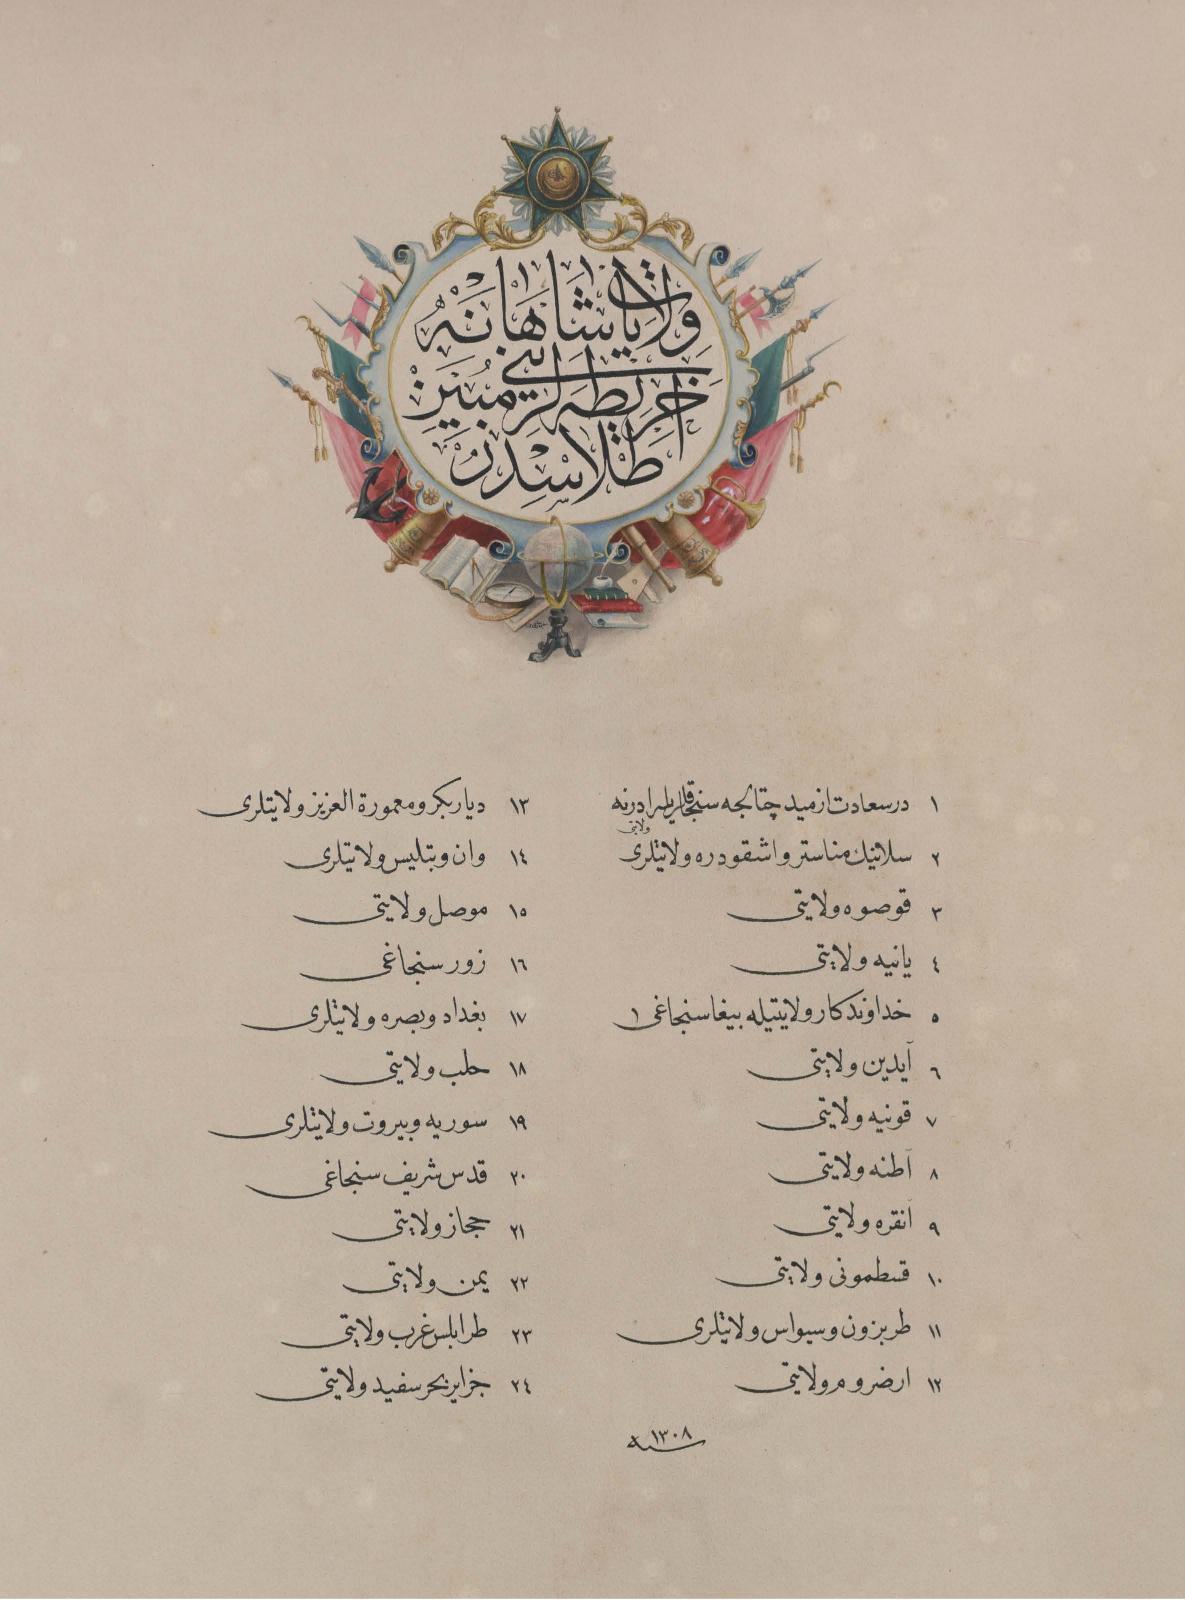 ولايات شاهانه
خريطه لرينى مبين
اطلاسدر
١ درسعادت ازميد چتالجه سنجاقلريله ادرنه
ولايتى
٢ سلانيك مناستر و اشقودره ولايتلرى
٣ قوصوه ولايتى
٤ يانيه ولايتى
٥ خداوندكار ولايتيله بيغا سنجاغى ١
٦ آيدين ولايتى
٧ قونيه ولايتى
٨ آطنه ولايتى
٩ انقره ولايتى
١٠ قسطمونى ولايتى
١١ طربزون و سيواس ولايتلرى
١٢ ارضروم ولايتى
١٣ دياربكر و معمورة العزيز ولايتلرى
١٤ وان و بتليس ولايتلرى
١٥ موصل ولايتى
١٦ زور سنجاغى
١٧ بغداد و بصره ولايتلرى
١٨ حلب ولايتى
١٩ سوريه و بيروت ولايتلرى
٢٠ قدس شريف سنجاغى
٢١ حجاز ولايتى
٢٢ يمن ولايتى
٢٣ طرابلس غرب ولايتى
٢٤ جزاير بحر سفيد ولايتى
سنه ١٣٠٨